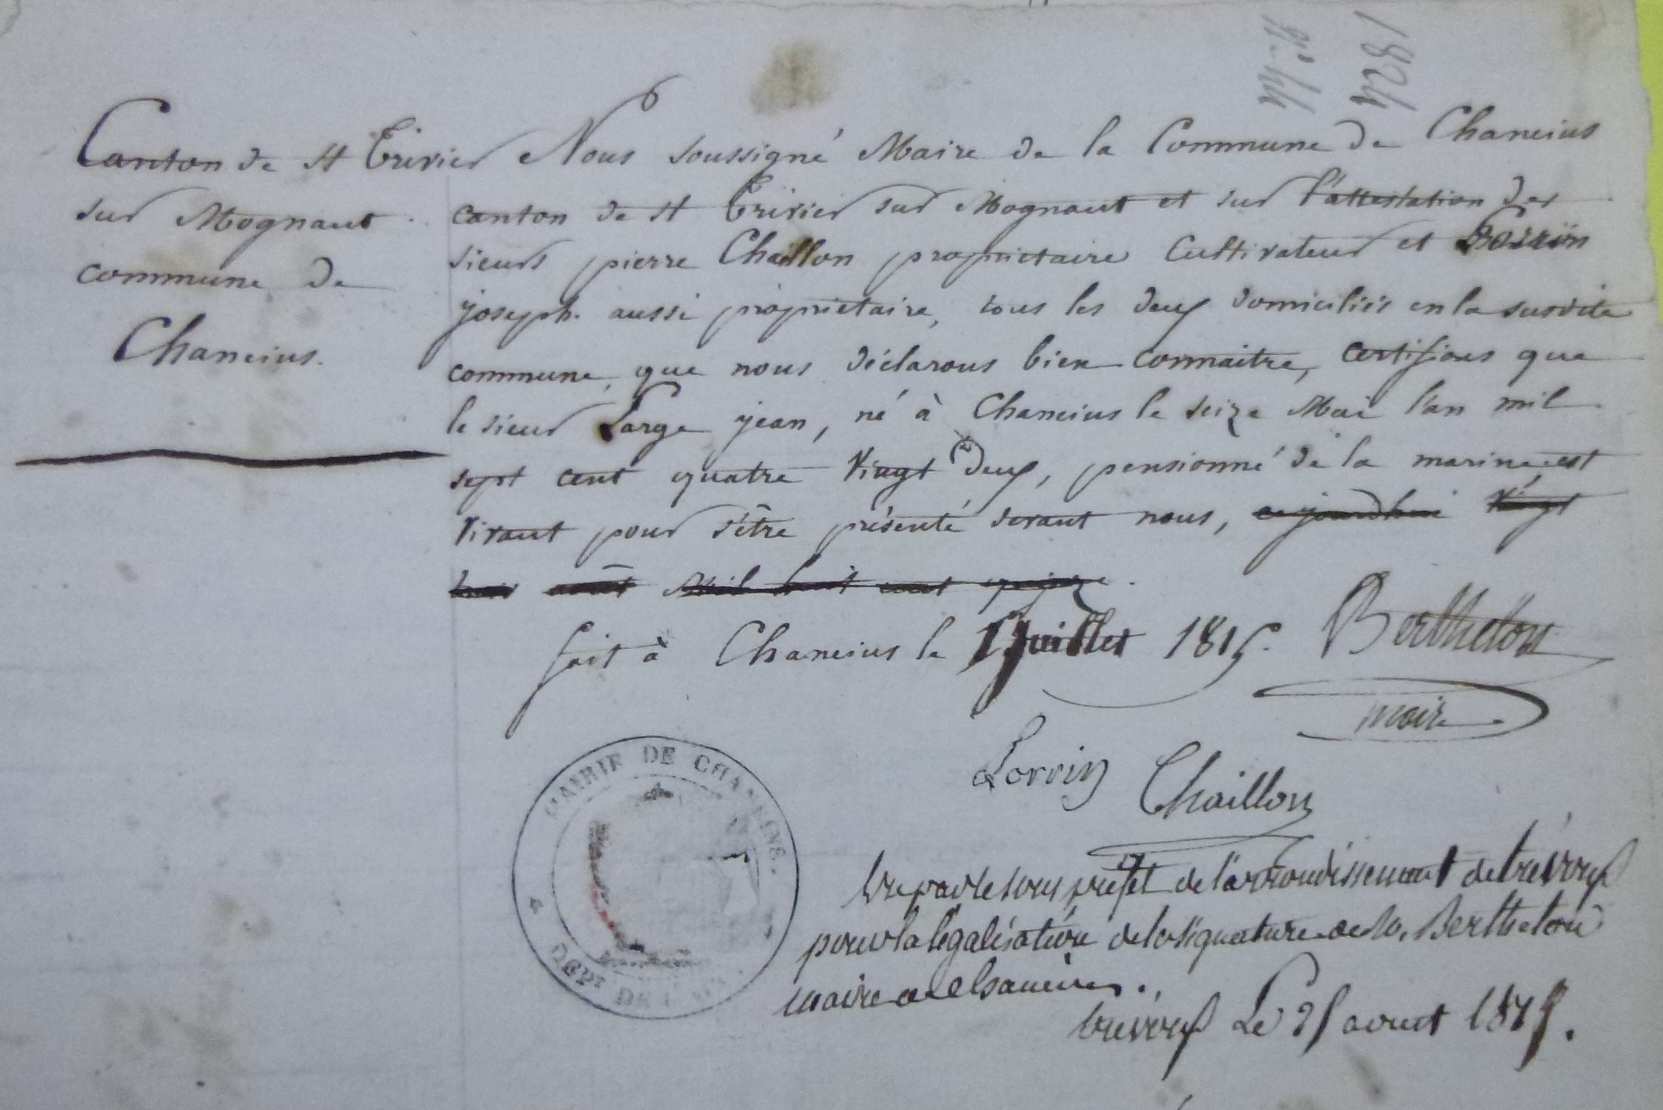 1824
N° 44
Canton de St Trivier
sur Mognant
commune de
Chaneins.
Nous soussigné Maire de la Commune de Chaneins
canton de St Trivier sur Mognant et sur l'attestation des
sieurs pierre Chaillon propriétaire Cultivateur et Lorrin
joseph. aussi propriétaire, tous les deux domiciliés en la susdite
commune, que nous déclarons bien connaitre, certifions que
le sieur Large jean, né à Chaneins le seize Mai l'an mil
sept cent quatre vingt deux, pensionné de la marine est
vivant pour s'être présenté devant nous, aujourdhui vingt
août Mil huit cent quinze.
fait à Chaneins le Juillet 1815. Berthelon
maire
Lorrin
Chaillon
MAIRIE DE CHANEINS.
DEPT DE L'AIN
Vu par le sous préfet de l'arrondissement de trévoux
pour la légalisation de la signature de M. Berthelon
maire de chaneins.
trévoux Le 25 aout 1815.